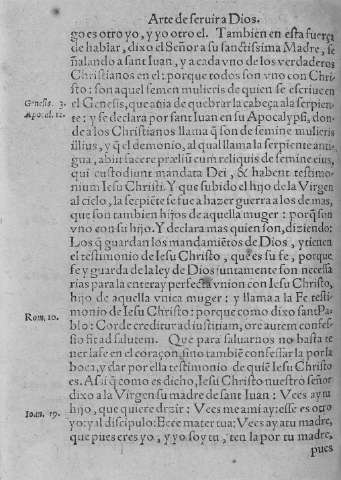 Arte de seruir a Dios.
go es otro yo, y yo otro el. Tambien en esta fuerça
de hablar, dixo el Señor a su sanctissima Madre, se
ñalando a sant Iuan, y a cada vno de los verdaderos
Christianos en el: porque todos son vno con Chri-
sto: son aquel semen mulieris de quien se escriue en
Genesis. 3.
el Genesis, que auia de quebrar la cabeça a la serpien
Apocal. 12.
te: y se declara por sant Iuan en su Apocalypsi, don-
de a los Christianos llama q̃ son de semine mulieris
illius, y q̃ el demonio, al qual llama la serpiente anti-
gua, abiit facere præliũ cum reliquis de semine eius,
qui custodiunt mandata Dei, & habent testimo-
nium Iesu Christi. Y que subido el hijo de la Virgen
al cielo, la serpiẽte se fue a hazer guerra a los de mas,
que son tambien hijos de aquella muger: porq̃ son
vno con su hijo. Y declara mas quien son, diziendo:
Los q̃ guardan los mandamiẽtos de Dios, y tienen
el testimonio de Iesu Christo, que es su fe, porque
fe y guarda de la ley de Dios juntamente son necessa
rias para la entera y perfecta vnion con Iesu Christo,
hijo de aquella vnica muger: y llama a la Fe testi-
monio de Iesu Christo: porque como dixo sant Pa-
Rom. 10.
blo: Corde creditur ad iustitiam, ore autem confes-
sio fit ad salutem. Que para saluarnos no basta te
ner la fe en el coraçon, sino tambiẽ confessar la por la
boca, y dar por ella testimonio de quiẽ Iesu Christo
es. Assi q̃ como es dicho, Iesu Christo nuestro señor
dixo a la Virgen su madre de sant Iuan: Vees ay tu
Ioan. 19.
hijo, que quiere dezir: Vees me ami ay: esse es otro
yo: y al discipulo: Ecce mater tua: Vees ay tu madre,
que pues eres yo, y yo soy tu, ten la por tu madre,
pues